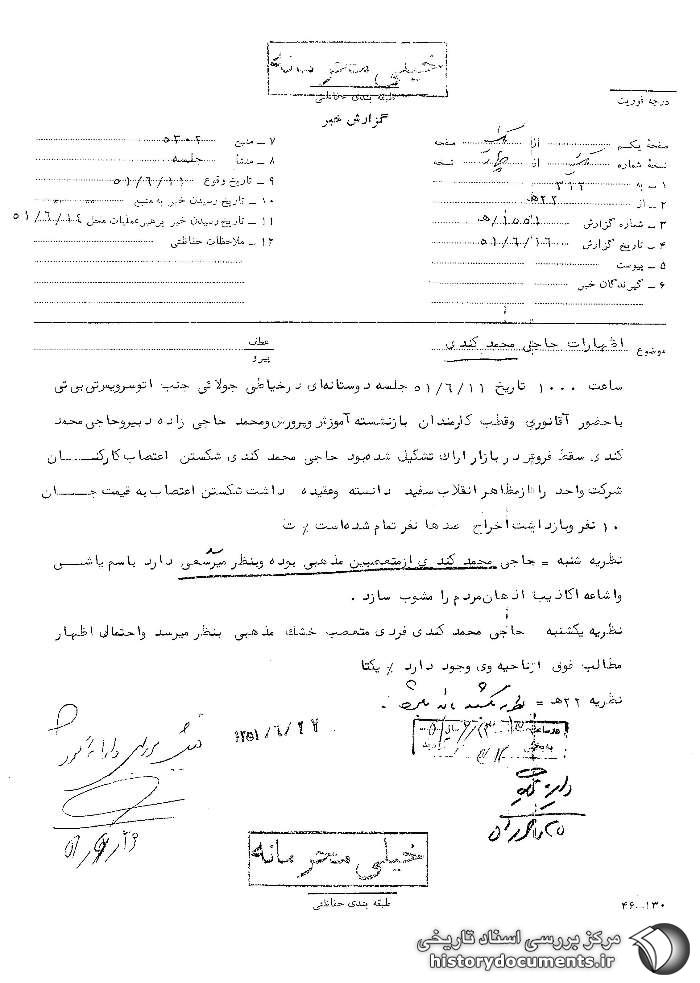 خیلی محرمانه
طبقه بندی حفاظتی
درجه فوریت
گزارش خبر
صفحهٔ یکم از یک صفحه
نسخهٔ شماره یک از چهار نسخه
۱ ـ به ۳۱۲
۲ ـ از ۲۲ هـ
۳ ـ شماره گزارش ۱۰۵۵۱/هـ
۴ ـ تاریخ گزارش ۵۱/۶/۱۶
۵ ـ پیوست
۶ ـ گیرندگان خبر
۷ ـ منبع ۵۳۰۲
۸ ـ منشأ جلسه
۹ ـ تاریخ وقوع ۵۱/۶/۱۱
۱۰ ـ تاریخ رسیدن خبر به منبع
۱۱ ـ تاریخ رسیدن خبر برهبر عملیات محل ۵۱/۶/۱۴
۱۲ ـ ملاحظات حفاظتی
موضوع اظهارات حاجی محمد کندی
عطف
پیرو
ساعت ۱۰۰۰ تاریخ ۵۱/۶/۱۱ جلسه دوستانه‌ای در خیاطی جولائی جنب اتوسرویس تی بی تی
با حضور آقانوری وقطب کارمندان بازنشسته آموزش وپرورش ومحمد حاجی زاده دبیر وحاجی محمد
کندی سقط فروش در بازار اراک تشکیل شده بود حاجی محمد کندی شکستن اعتصاب کارکنان
شرکت واحد را از مظاهر انقلاب سفید دانسته وعقیده داشت شکستن اعتصاب به قیمت جان
۱۰ نفر وبازداشت اخراج صدها نفر تمام شده است / ت
نظریه شنبه = حاجی محمد کندی از متعصبین مذهبی بوده وبنظر میرسد سعی دارد باسم پاشی
واشاعه اکاذیب اذهان مردم را مشوب سازد .
نظریه یکشنبه حاجی محمد کندی فردی متعصب خشک مذهبی بنظر میرسد واحتمالی اظهار
مطالب فوق از ناحیه وی وجود دارد / یکتا
نظریه ۲۲ هـ = نظریه یکشنبه
۱۳۵۱/۶/۲۷
خیلی محرمانه
طبقه بندی حفاظتی
۴۶ـ۱۳۰
مرکز بررسی اسناد تاریخی
historydocuments.ir